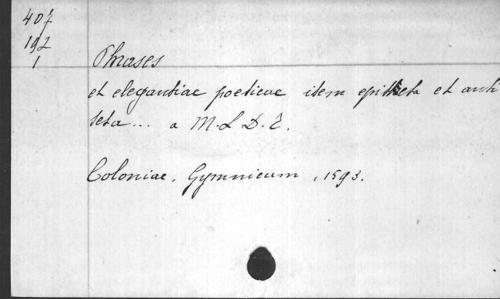 407
192
1
Phrases
et elegantiae poeticae item epitheta et anti
teta... a M. L. D. T.
Coloniae, Gymnicum, 1593.